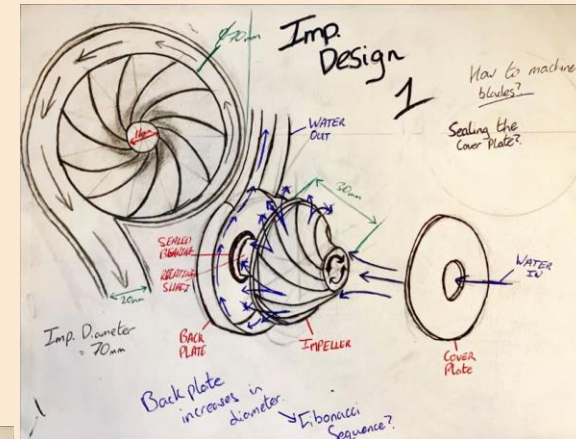 Imp.
Design
1
⌀70mm
How to machine
blades?
Sealing the
Cover Plate?
WATER
OUT
30mm
SEALED
BEARING
ROTATING
SHAFT
WATER
IN
20mm
Imp. Diameter
= 70mm
BACK
PLATE
IMPELLER
COVER
Plate
Back plate
increases in
diameter.
Fibonacci
Sequence?